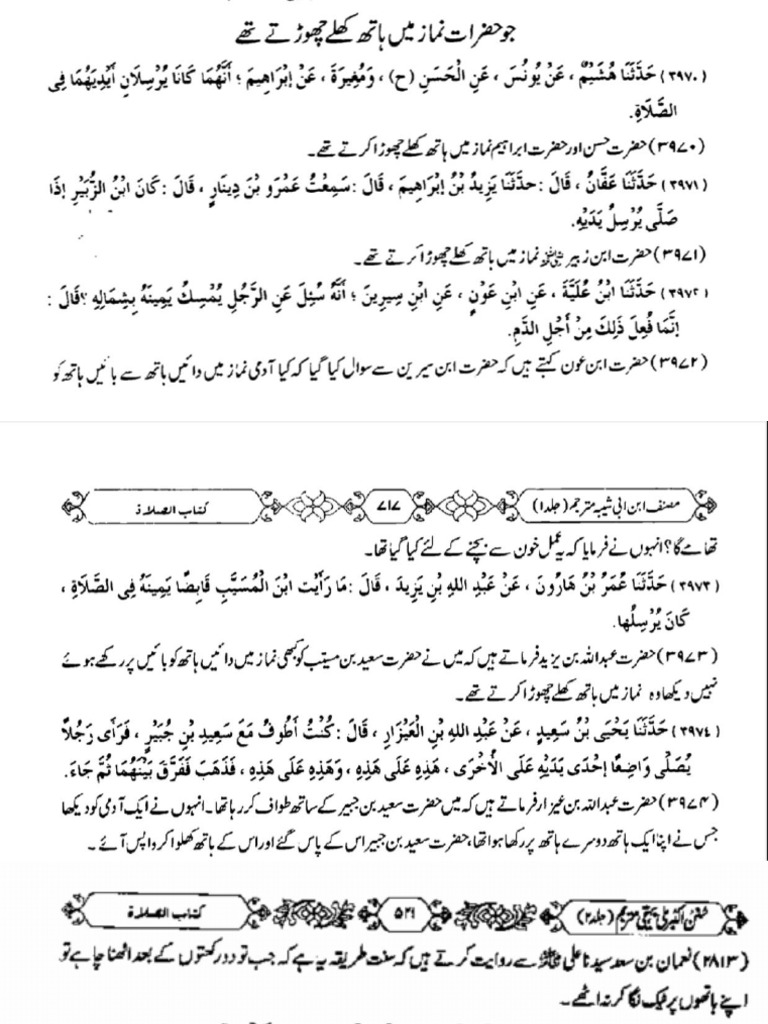 جو حضرات نماز میں ہاتھ کھلے چھوڑتے تھے
(۳۹۷۰) حَدَّثَنَا هُشَيْمٌ ، عَنْ يُونُسَ ، عَنِ الْحَسَنِ (ح) ، وَمُغِيرَةَ ، عَنْ إِبْرَاهِيمَ ؛ أَنَّهُمَا كَانَا يُرْسِلَانِ أَيْدِيَهُمَا فِي
الصَّلَاةِ.
(۳۹۷۰) حضرت حسن اور حضرت ابراہیم نماز میں ہاتھ کھلے چھوڑا کرتے تھے۔
(۳۹۷۱) حَدَّثَنَا عَفَّانُ ، قَالَ : حدَّثَنَا يَزِيدُ بْنُ إِبْرَاهِيمَ ، قَالَ : سَمِعْتُ عَمْرَو بْنَ دِينَارٍ ، قَالَ : كَانَ ابْنُ الزُّبَيْرِ إِذَا
صَلَّى يُرْسِلُ يَدَيْهِ.
(۳۹۷۱) حضرت ابن زبیر رضی اللہ عنہ نماز میں ہاتھ کھلے چھوڑا کرتے تھے۔
(۳۹۷۲) حَدَّثَنَا ابْنُ عُلَيَّةَ ، عَنِ ابْنِ عَوْنٍ ، عَنِ ابْنِ سِيرِينَ ؛ أَنَّهُ سُئِلَ عَنِ الرَّجُلِ يُمْسِكُ يَمِينَهُ بِشِمَالِهِ ؟ قَالَ :
إِنَّمَا فُعِلَ ذَلِكَ مِنْ أَجْلِ الدَّمِ.
(۳۹۷۲) حضرت ابن عون کہتے ہیں کہ حضرت ابن سیرین سے سوال کیا گیا کہ کیا آدمی نماز میں دائیں ہاتھ سے بائیں ہاتھ کو
مصنف ابن ابی شیبہ مترجم (جلد ۱) ۷۱۷ كتاب الصلاة
تھامے گا؟ انہوں نے فرمایا کہ یہ عمل خون سے بچنے کے لئے کیا گیا تھا۔
(۳۹۷۳) حَدَّثَنَا عُمَرُ بْنُ هَارُونَ ، عَنْ عَبْدِ اللهِ بْنِ يَزِيدَ ، قَالَ : مَا رَأَيْت ابْنَ الْمُسَيَّبِ قَابِضًا يَمِينَهُ فِي الصَّلَاةِ ،
كَانَ يُرْسِلُها.
(۳۹۷۳) حضرت عبداللہ بن یزید فرماتے ہیں کہ میں نے حضرت سعید بن مسیب کو کبھی نماز میں دائیں ہاتھ کو بائیں پر رکھے ہوئے
نہیں دیکھا وہ نماز میں ہاتھ کھلے چھوڑا کرتے تھے۔
(۳۹۷٤) حَدَّثَنَا يَحْيَى بْنُ سَعِيدٍ ، عَنْ عَبْدِ اللهِ بْنِ الْعَيْزَارِ ، قَالَ : كُنْتُ أَطُوفُ مَعَ سَعِيدِ بْنِ جُبَيْرٍ ، فَرَأَى رَجُلاً
يُصَلِّي وَاضِعًا إِحْدَى يَدَيْهِ عَلَى الْأُخْرَى ، هَذِهِ عَلَى هَذِهِ ، وَهَذِهِ عَلَى هَذِهِ ، فَذَهَبَ فَفَرَّقَ بَيْنَهُمَا ثُمَّ جَاءَ.
(۳۹۷۴) حضرت عبداللہ بن عیزار فرماتے ہیں کہ میں حضرت سعید بن جبیر کے ساتھ طواف کر رہا تھا۔ انہوں نے ایک آدمی کو دیکھا
جس نے اپنا ایک ہاتھ دوسرے ہاتھ پر رکھا ہوا تھا، حضرت سعید بن جبیر اس کے پاس گئے اور اس کے ہاتھ کھلوا کر واپس آئے۔
سنن الکبریٰ بیہقی مترجم (جلد ۲) ۵۲۱ كتاب الصلاة
(۲۸۱۳) نعمان بن سعد سیدنا علی رضی اللہ عنہ سے روایت کرتے ہیں کہ سنت طریقہ یہ ہے کہ جب تو دو رکعتوں کے بعد اٹھنا چاہے تو
اپنے ہاتھوں پر ٹیک لگا کر نہ اٹھے۔